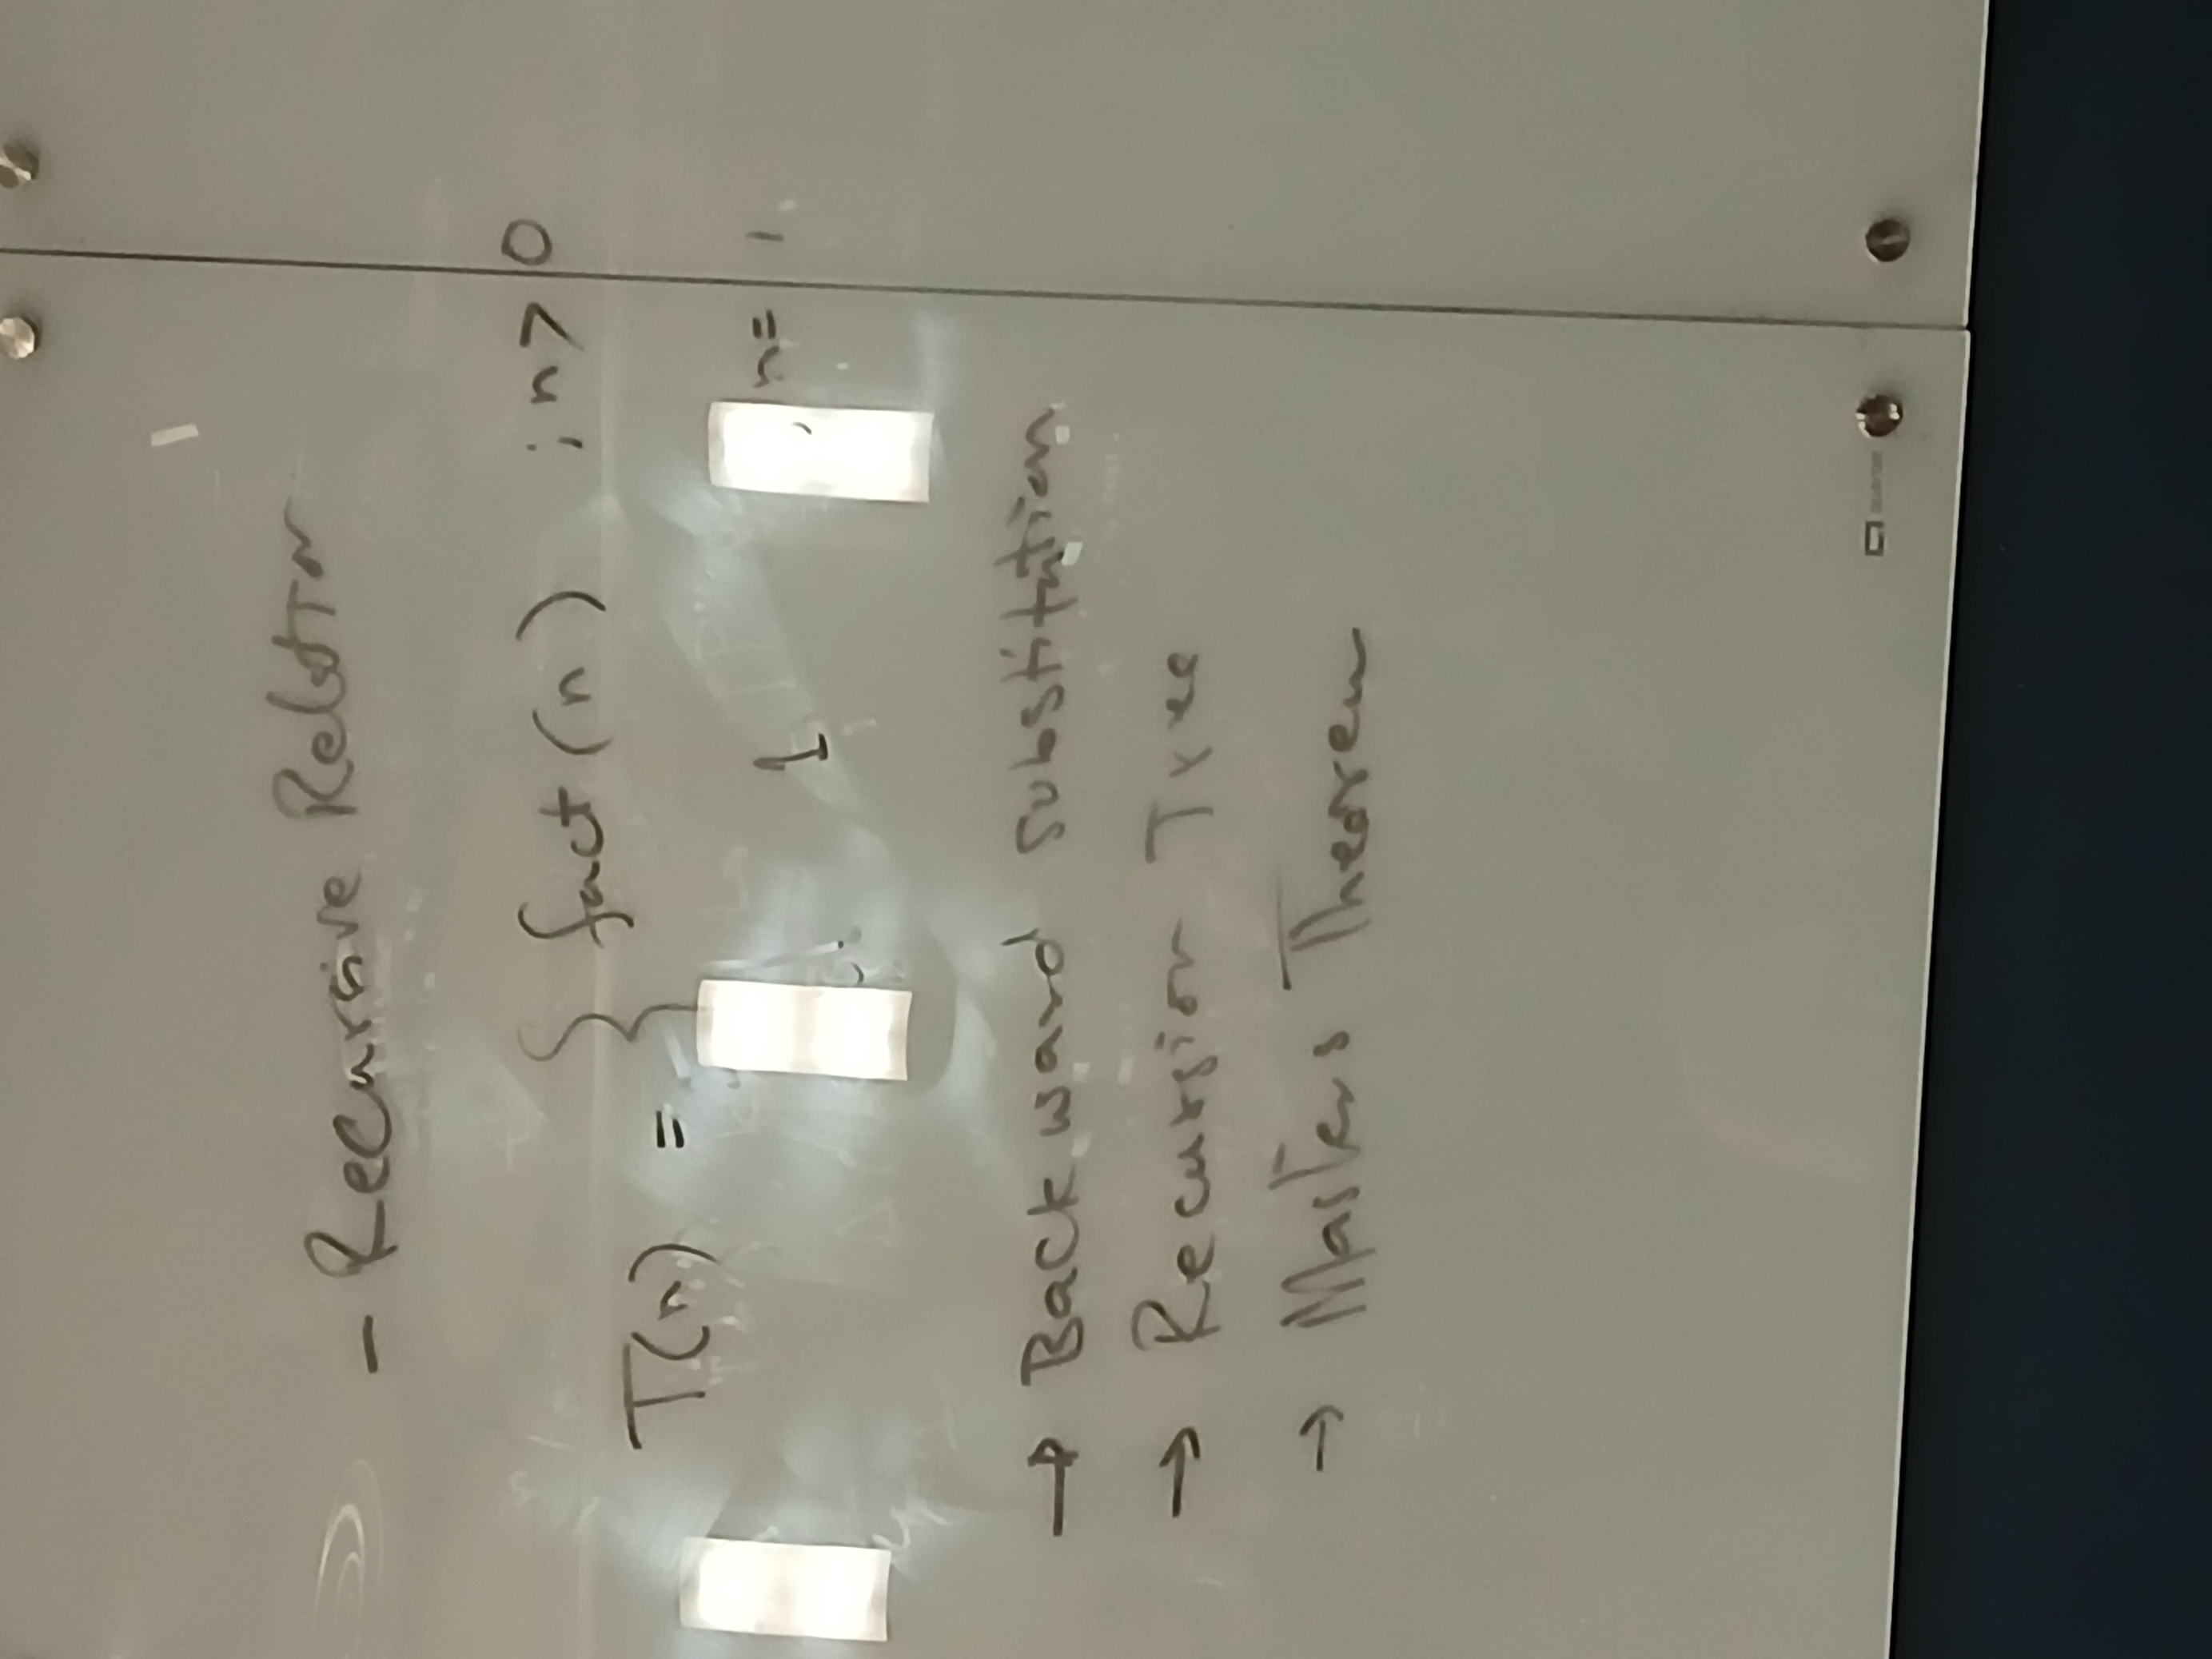 - Recursive Relation
T(n) = { fact(n) ; n > 0
1 , n = 1
→ Backward substitution
→ Recursion Tree
→ Masters Theorem